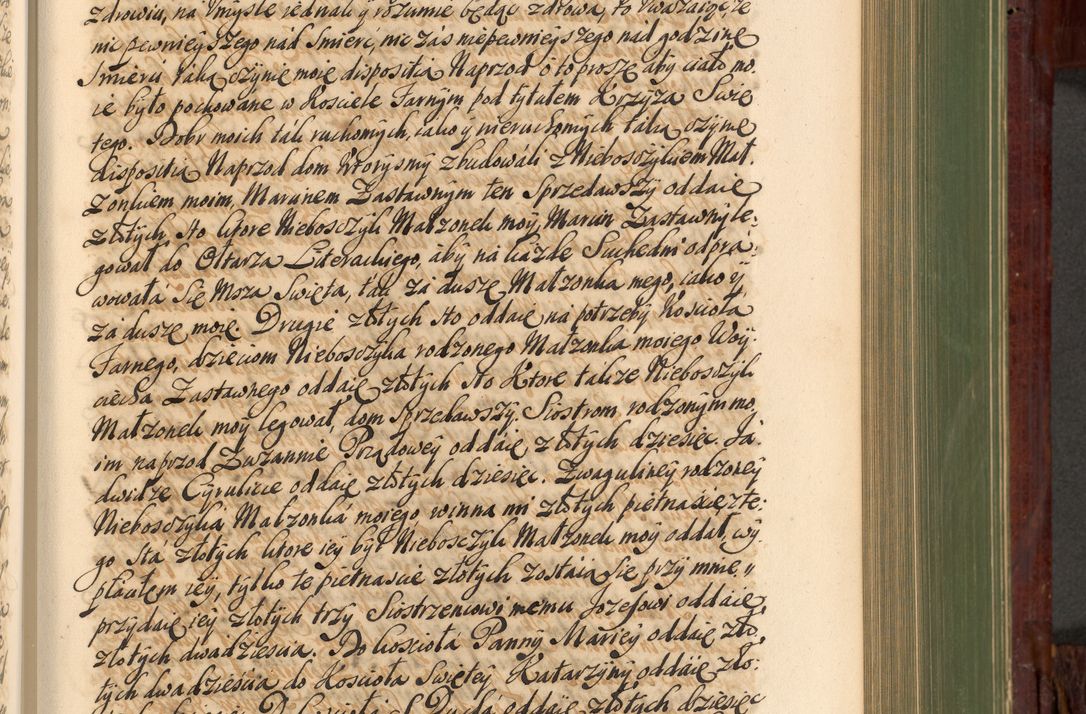 zdrowiu, na Vmysle iednak y rozumie będąc zdrowa, to Vważaiąc, że
nic pewnieyszego nád Smierć, nic zás niepewnieyszego nad godzinę
Smierci táką czynię moię disposities Naprzod o to proszę aby ciało mo:
ie było pochowáne w Kosciele Farnym pod tytułem Krzyża Swię
tego. Dobr moich ták ruchomych, iako y nieruchomych táką czynię
dispositią Naprzod dom ktorysmy zbudowáli z Nieboszczykiem Mał.
zonkiem moim, Marcinem Zastawnym ten Sprzedawszy oddaię
złotych sto ktore Nieboszczyk Małzonek moy, Marcin Zastawny le:
gował do Ołtarza Literackiego, áby ná káżde Suchedni odprá:
wowáłá się Msza Swięta, ták zá duszę Małzonka mego, iako y
zá duszę moię. Drugie złotych sto oddaię na potrzeby Kosciołá
Farnego, dzieciom Nieboszczyka rodzonego Małzonka moiego Woy:
ciecha Zastawnego oddaię złotych sto Ktore takze Nieboszczyk
Małzonek moy legował, dom sprzedawszy. Siostrom rodzonym mo
im naprzod Zuzannie Prądowey oddáię złotych dziesięć. Ja:
dwidze Cyruliczce oddaię złotych dziesięć. Zwaguliney rodzoney
Nieboszczyka Małzonká moiego winna mi złotych piętnascie z te:
go sta złotych ktore iey był Nieboszczyk Małzonek moy oddał, wy
płaciłem iey, tylko te piętnascie złotych zostaią się przy mnie, y
przydaię iey złotych trzy Siostrzencowi memu Jozefowi oddaię
złotych dwadziescia. Do kosciołá Panny Máriey oddáię zło,
tych dwádziescia do Kosciołá Swiętey Katarzyny oddáię zło:
Ducha oddáię złotych dziesięć